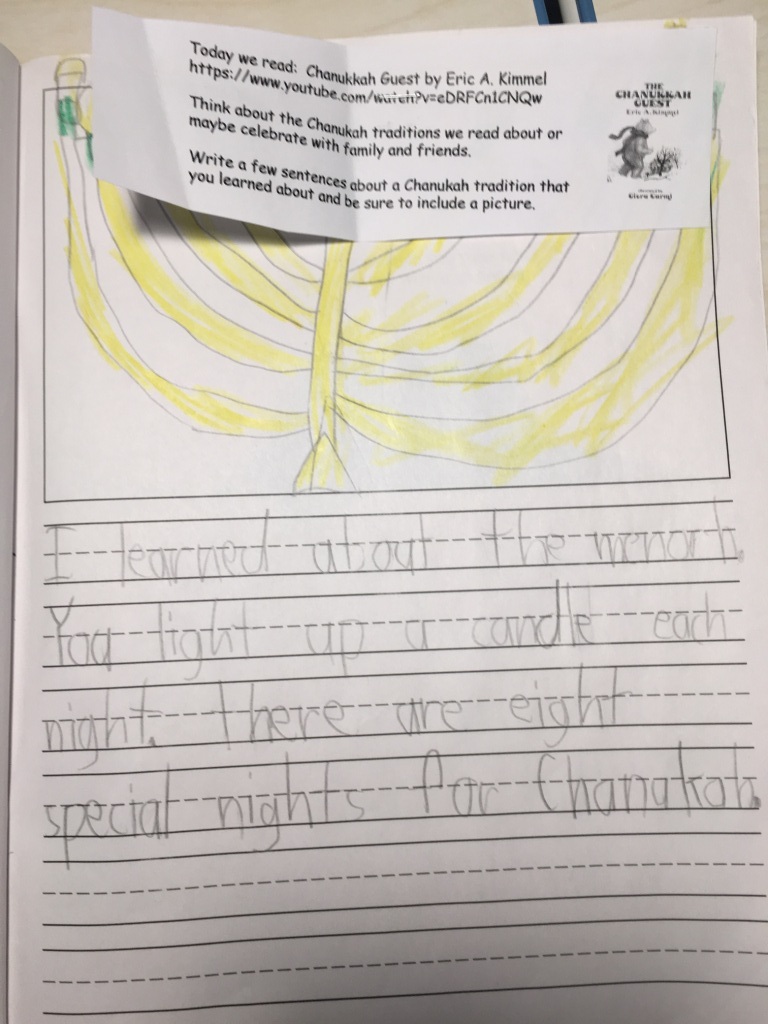 Today we read: Chanukkah Guest by Eric A. Kimmel
https://www.youtube.com/watch?v=eDRFCn1CNQw
Think about the Chanukah traditions we read about or
maybe celebrate with family and friends.
Write a few sentences about a Chanukah tradition that
you learned about and be sure to include a picture.
THE
CHANUKKAH
GUEST
Eric A. Kimmel
Giora Carmi
I learned about the menorh.
You light up a candle each
night. there are eight
special nights for Chanakah.